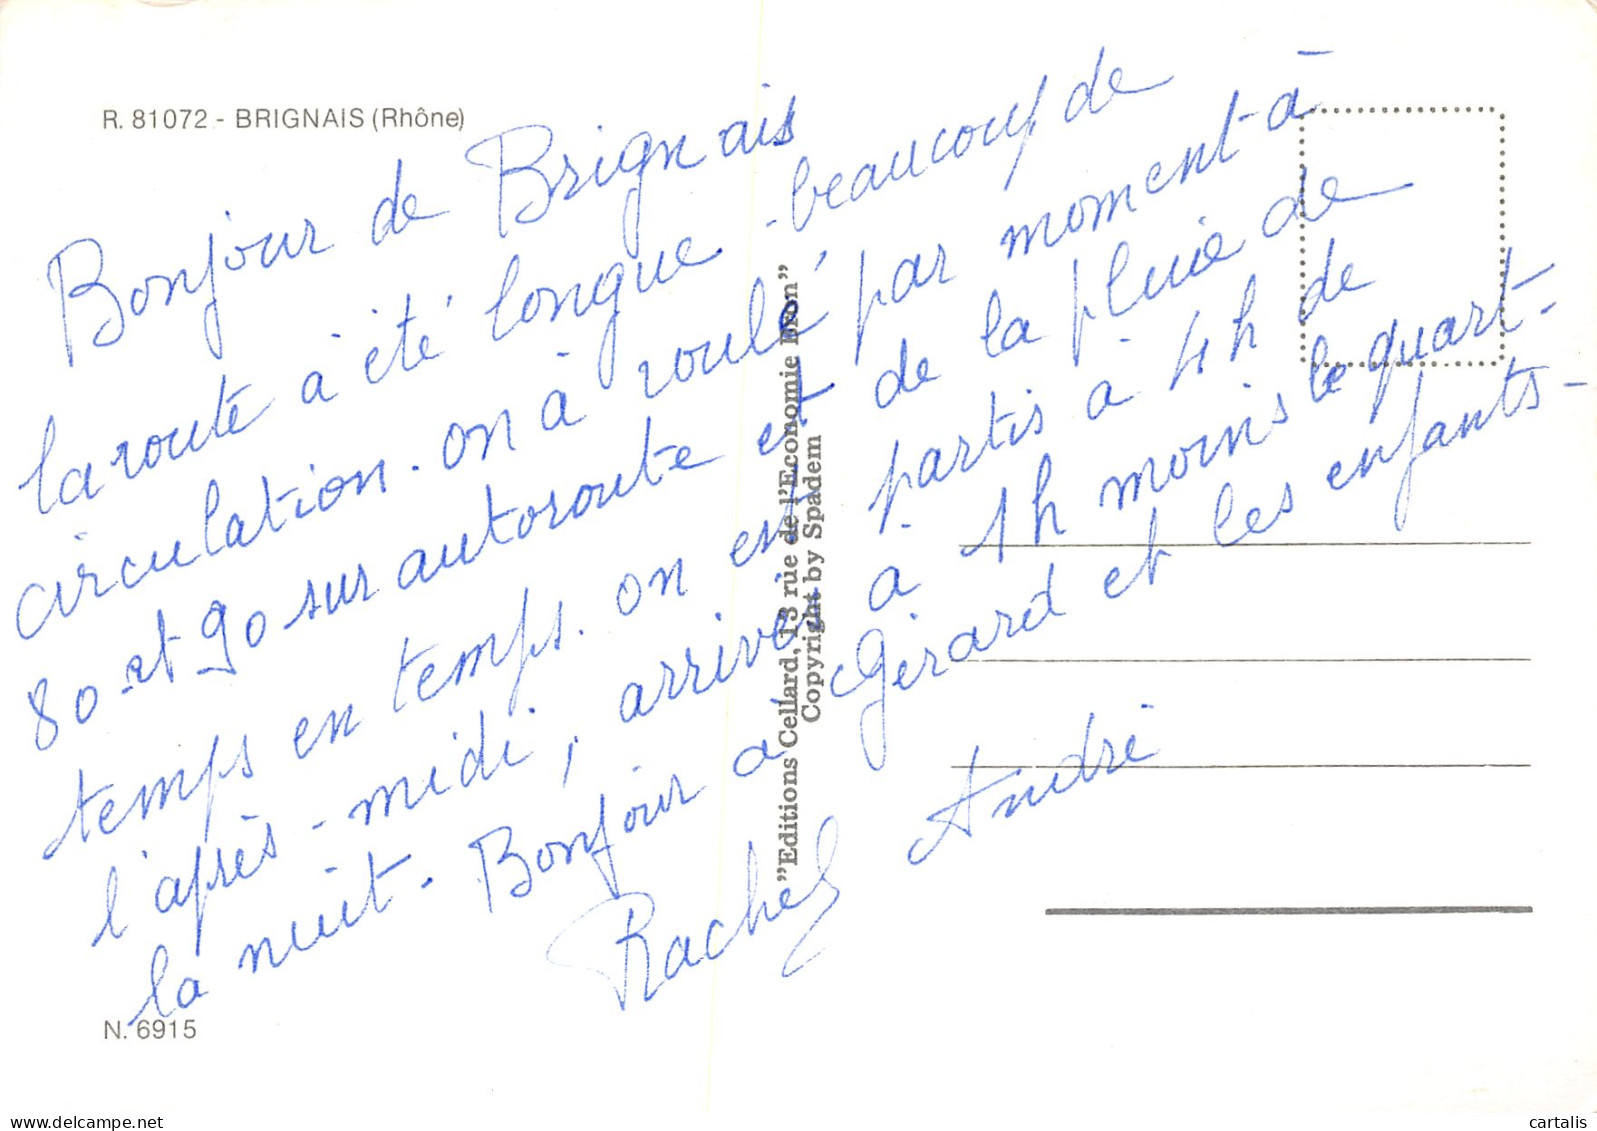 R. 81072 - BRIGNAIS (Rhône)
Bonjour de Brignais
la route à été longue - beaucoup de
circulation. on à roulé par moment - à
80 et 90 sur autoroute et de la pluie de
temps en temps. on est partis à 4h de
l'après-midi, arrivés à 1h moins le quart -
la nuit - Bonjour à Gérard et les enfants -
Rachel André
"Editions Cellard, 13 rue de l'Economie Bron"
Copyright by Spadem
N. 6915
cartalis